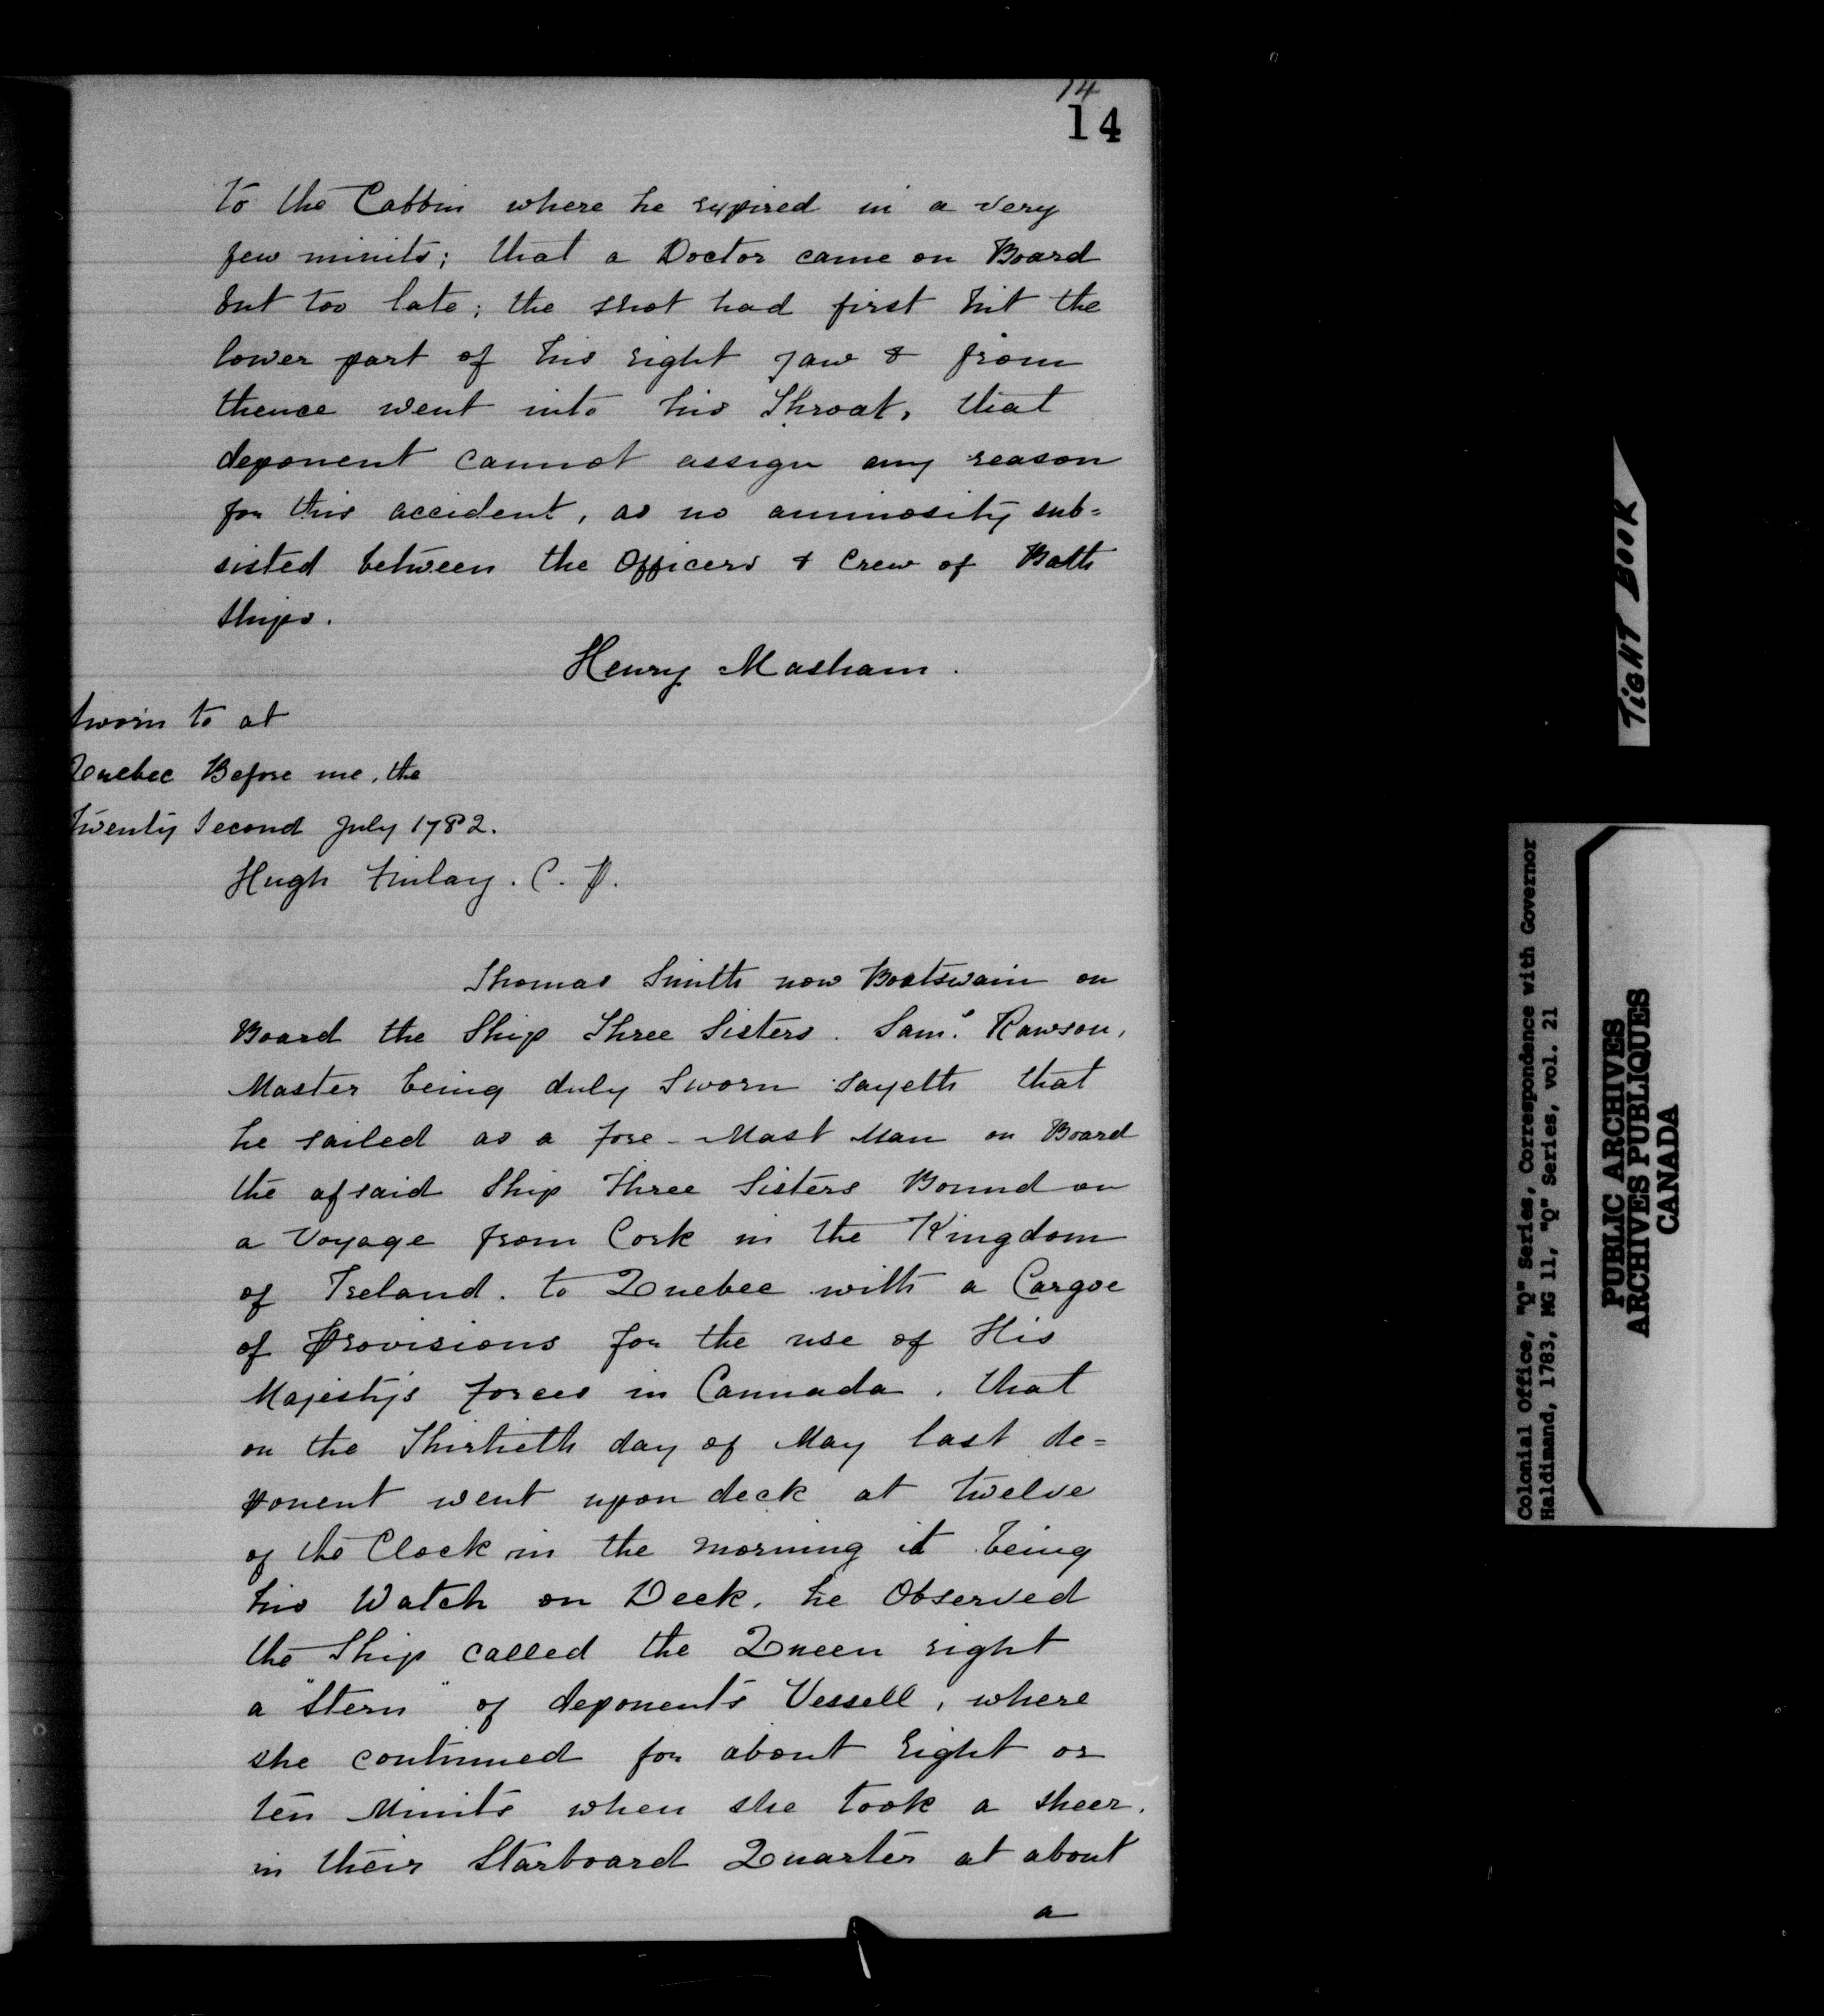 14
14
to the Cabbin where he expired in a very
few minits; that a Doctor came on Board
but too late; the shot had first hit the
lower part of his right jaw & from
thence went into his Throat, that
deponent cannot assign any reason
for this accident, as no animosity sub=
sisted between the Officers & Crew of Both
Ships.
Henry Masham.
Sworn to at
Quebec Before me, the
Twenty Second July 1782.
Hugh Finlay. C. P.
Thomas Smith now Boatswain on
Board the Ship Three Sisters. Saml. Rawson,
Master being duly Sworn Sayeth that
he sailed as a fore-Mast Man on Board
the afsaid Ship Three Sisters Bound on
a Voyage from Cork in the Kingdom
of Ireland. to Quebec with a Cargoe
of Provisions for the use of His
Majesty's forces in Cannada, that
on the Thirtieth day of May last de=
ponent went upon deck at twelve
of the Clock in the morning it being
his Watch on Deck, he Observed
the Ship called the Queen right
a "Stern" of deponents Vessell, where
she continued for about Eight or
ten Minits when she took a sheer,
in their Starboard Quarter at about
a
TIGHT BOOK
Colonial Office, "Q" Series, Correspondence with Governor
Haldimand, 1783, MG 11, "Q" Series, vol. 21
PUBLIC ARCHIVES
ARCHIVES PUBLIQUES
CANADA